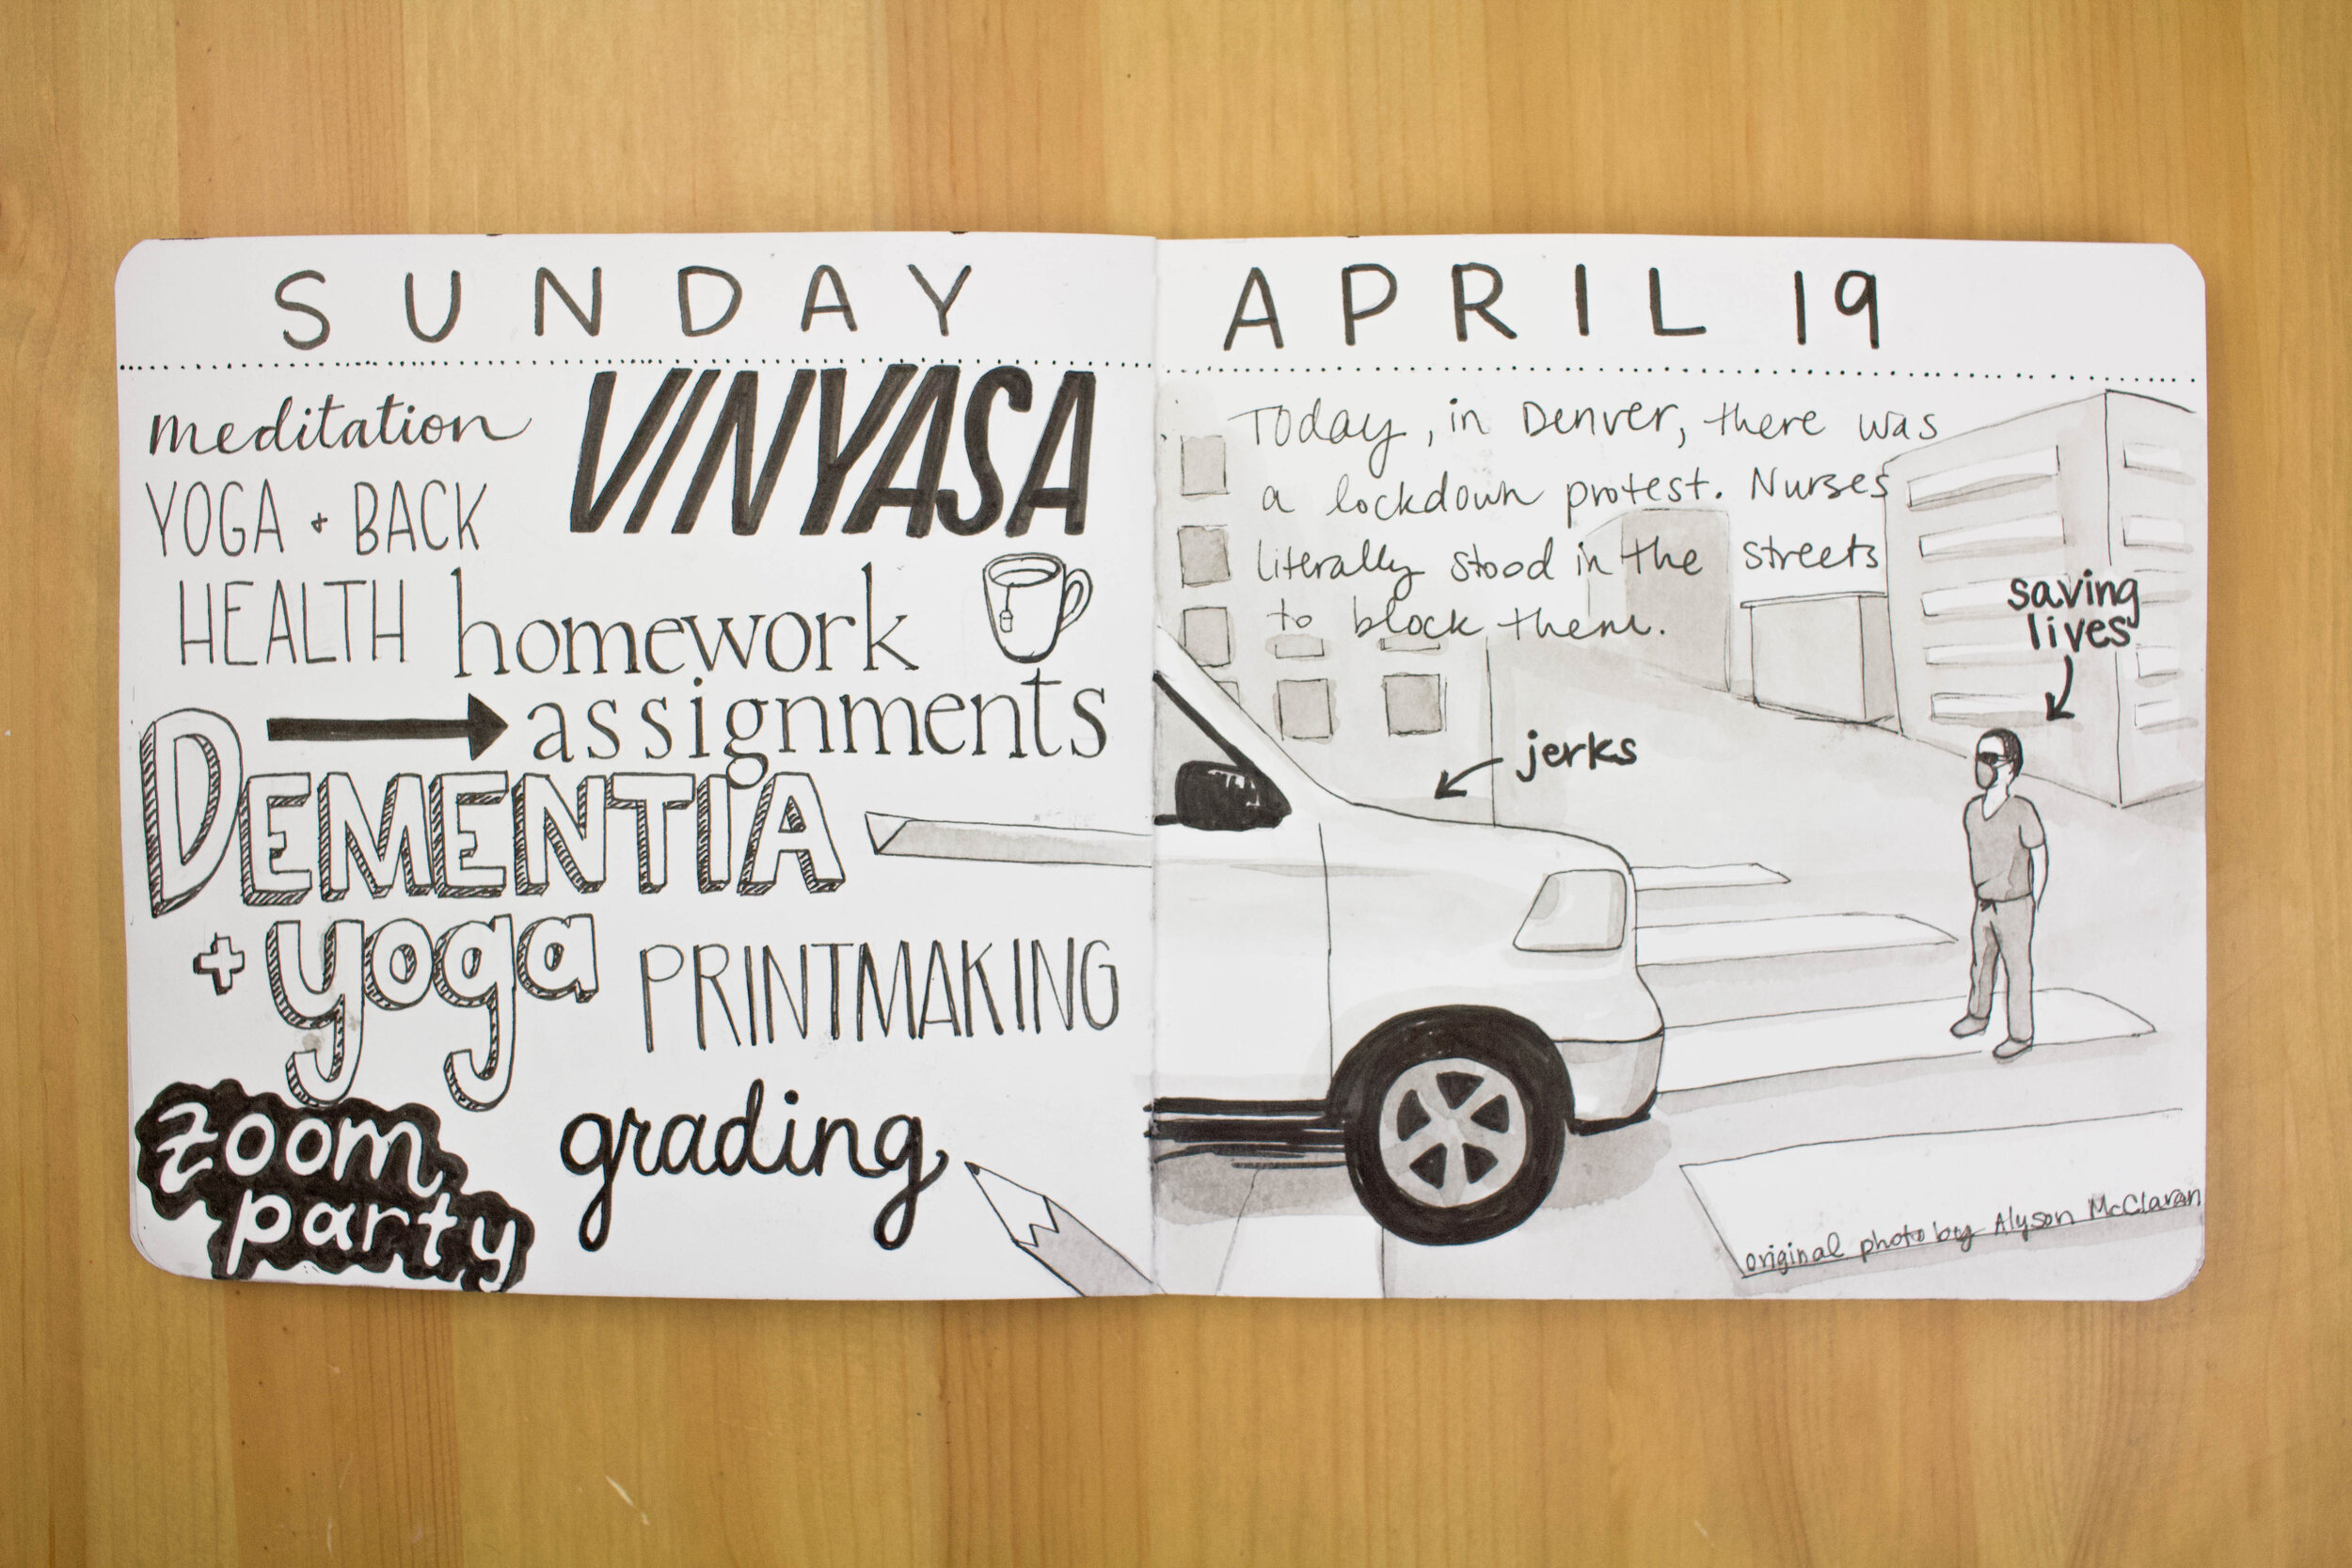 SUNDAY
meditation
VINYASA
YOGA + BACK
HEALTH
homework
assignments
DEMENTIA
+ yoga
PRINTMAKING
zoom
party
grading
APRIL 19
Today, in Denver, there was
a lockdown protest. Nurses
literally stood in the streets
to block them.
saving
lives
jerks
original photo by Alyson McClaran